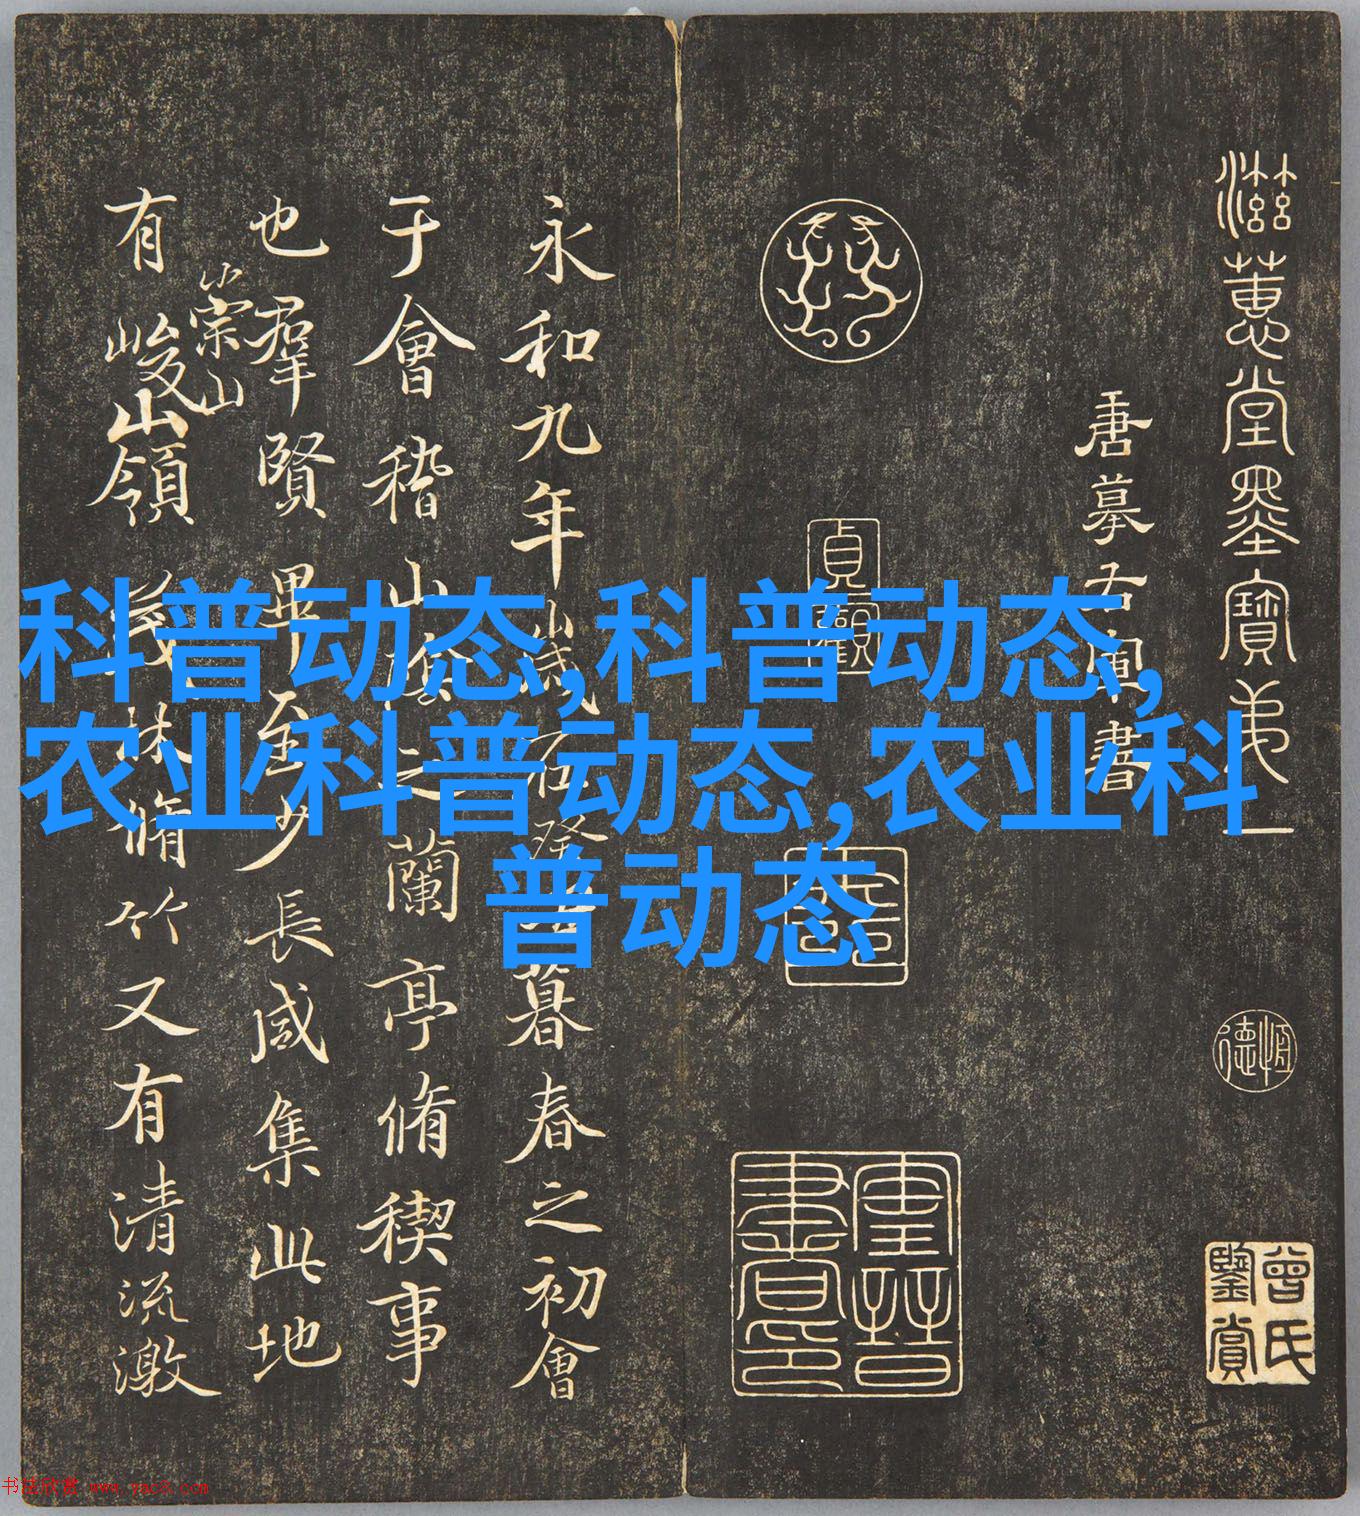 科普动态,科普动态,
农业科普动态,农业科
普动态
滋蕙堂墨寶弟一
唐摹右軍書
貞觀
曾氏鑒賞
永和九年歲在癸丑暮春之初會
于會稽山陰之蘭亭脩稧事
也羣賢畢至少長咸集此地
崇山
有峻山領茂林脩竹又有清流激
书法欣赏 www.yac8.com